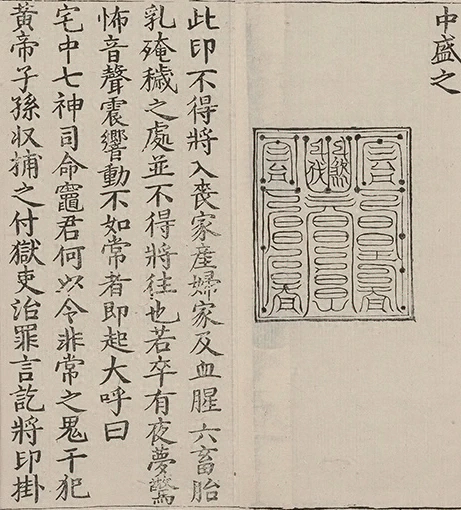 中盛之
此印不得將入喪家產婦家及血腥六畜胎
乳殗穢之處並不得將往也若卒有夜夢驚
怖音聲震響動不如常者即起大呼曰
宅中七神司命竈君何以令非常之鬼干犯
黃帝子孫収捕之付獄吏治罪言訖將印掛